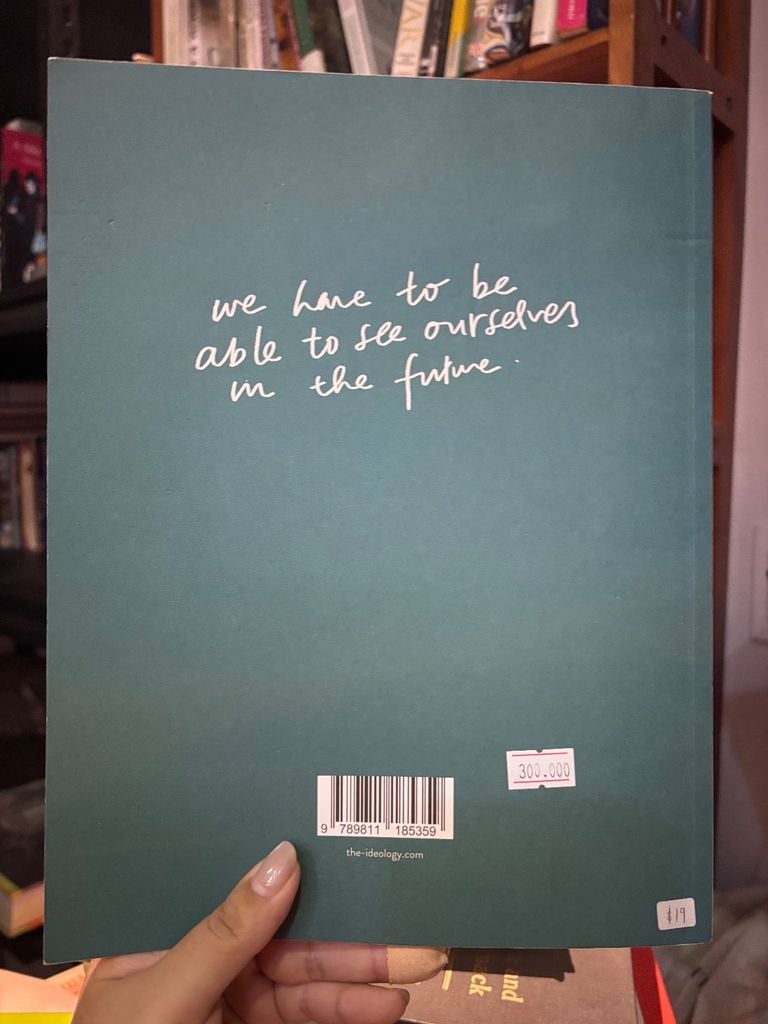 WARH
we have to be
able to see ourselves
in the future.
300.000
9 789811 185359
the-ideology.com
$19
and